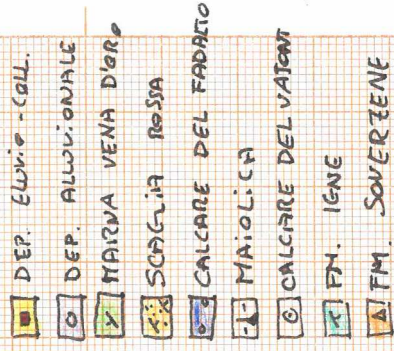 DEP. ELUVIO-COLL.
DEP. ALLUVIONALE
MARNA VENA D'ORO
SCAGLIA ROSSA
CALCARE DEL FADALTO
MAIOLICA
CALCARE DEL VAJONT
FM. IGNE
FM. SOVERZENE